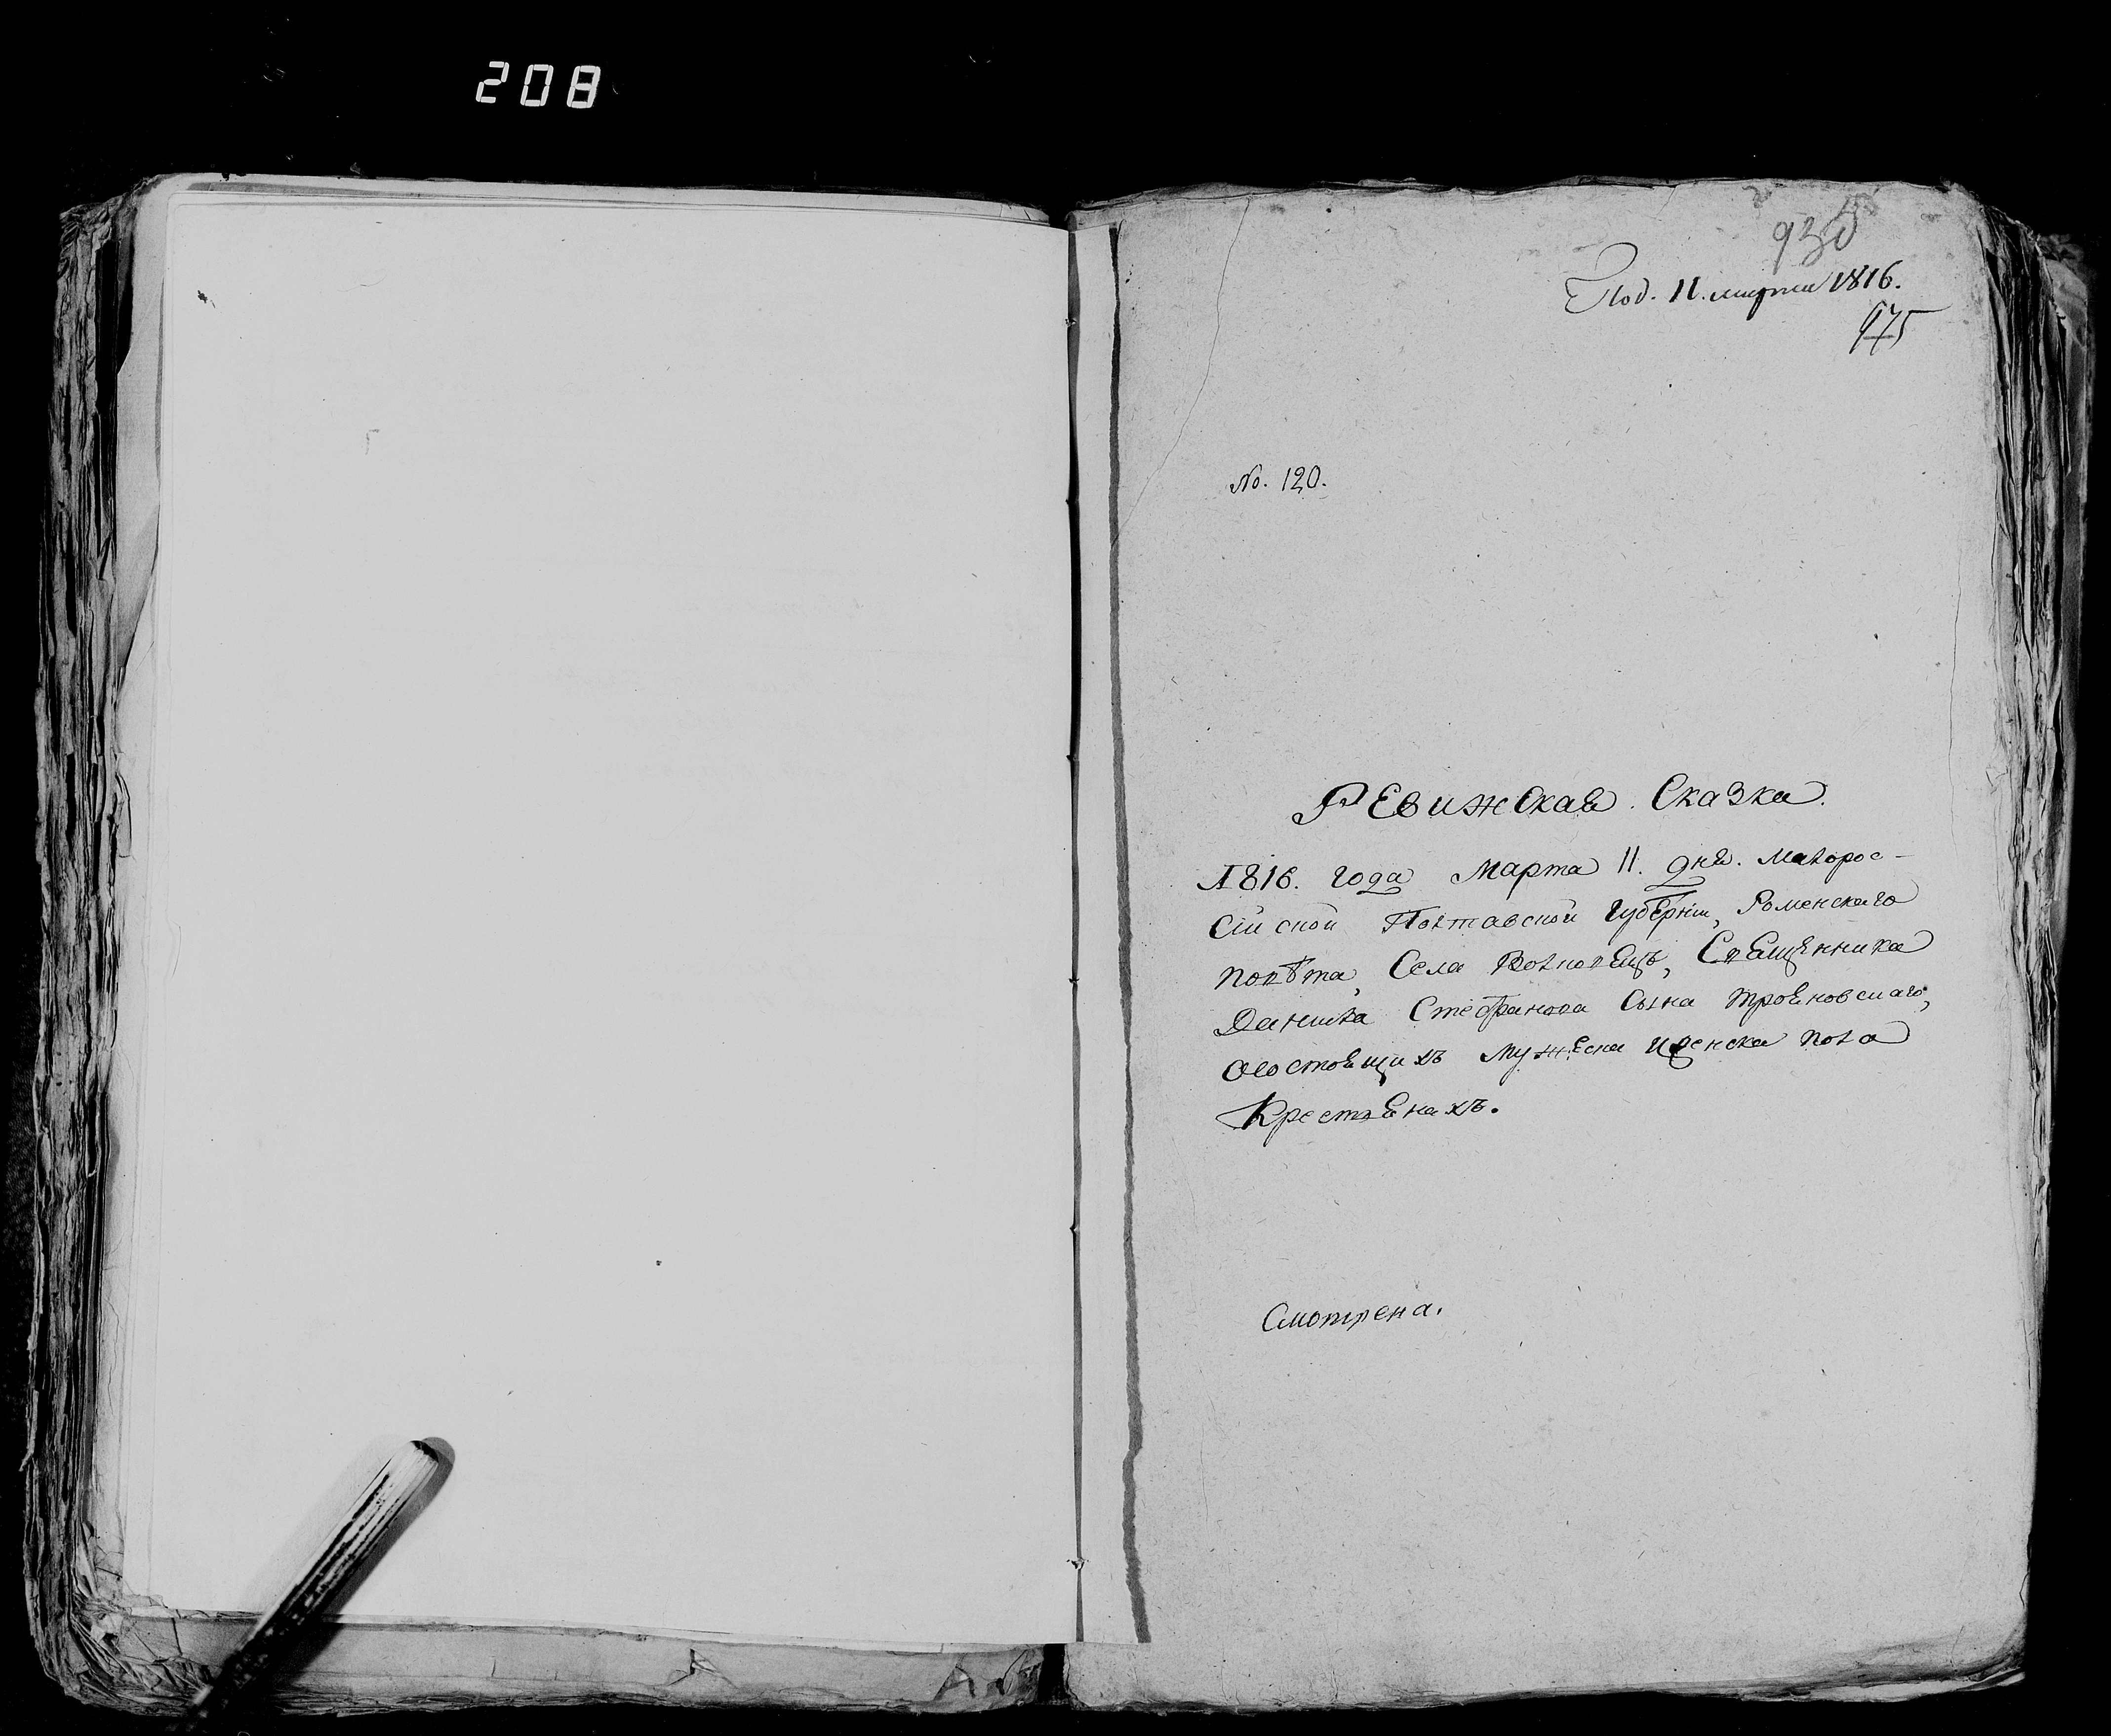 208
930
Под. 11. марта 1816.
975
No. 120.
Ревижская Сказка.
1816. года Марта 11. дня. Малорос-
сийской Полтавской Губернии, Роменскаго
Повѣта, Села Священника
Данила Стефанова Сына Трояновскаго,
Осостоящихъ Мужеска иженска пола
Крестьянахъ.
Смотрена.